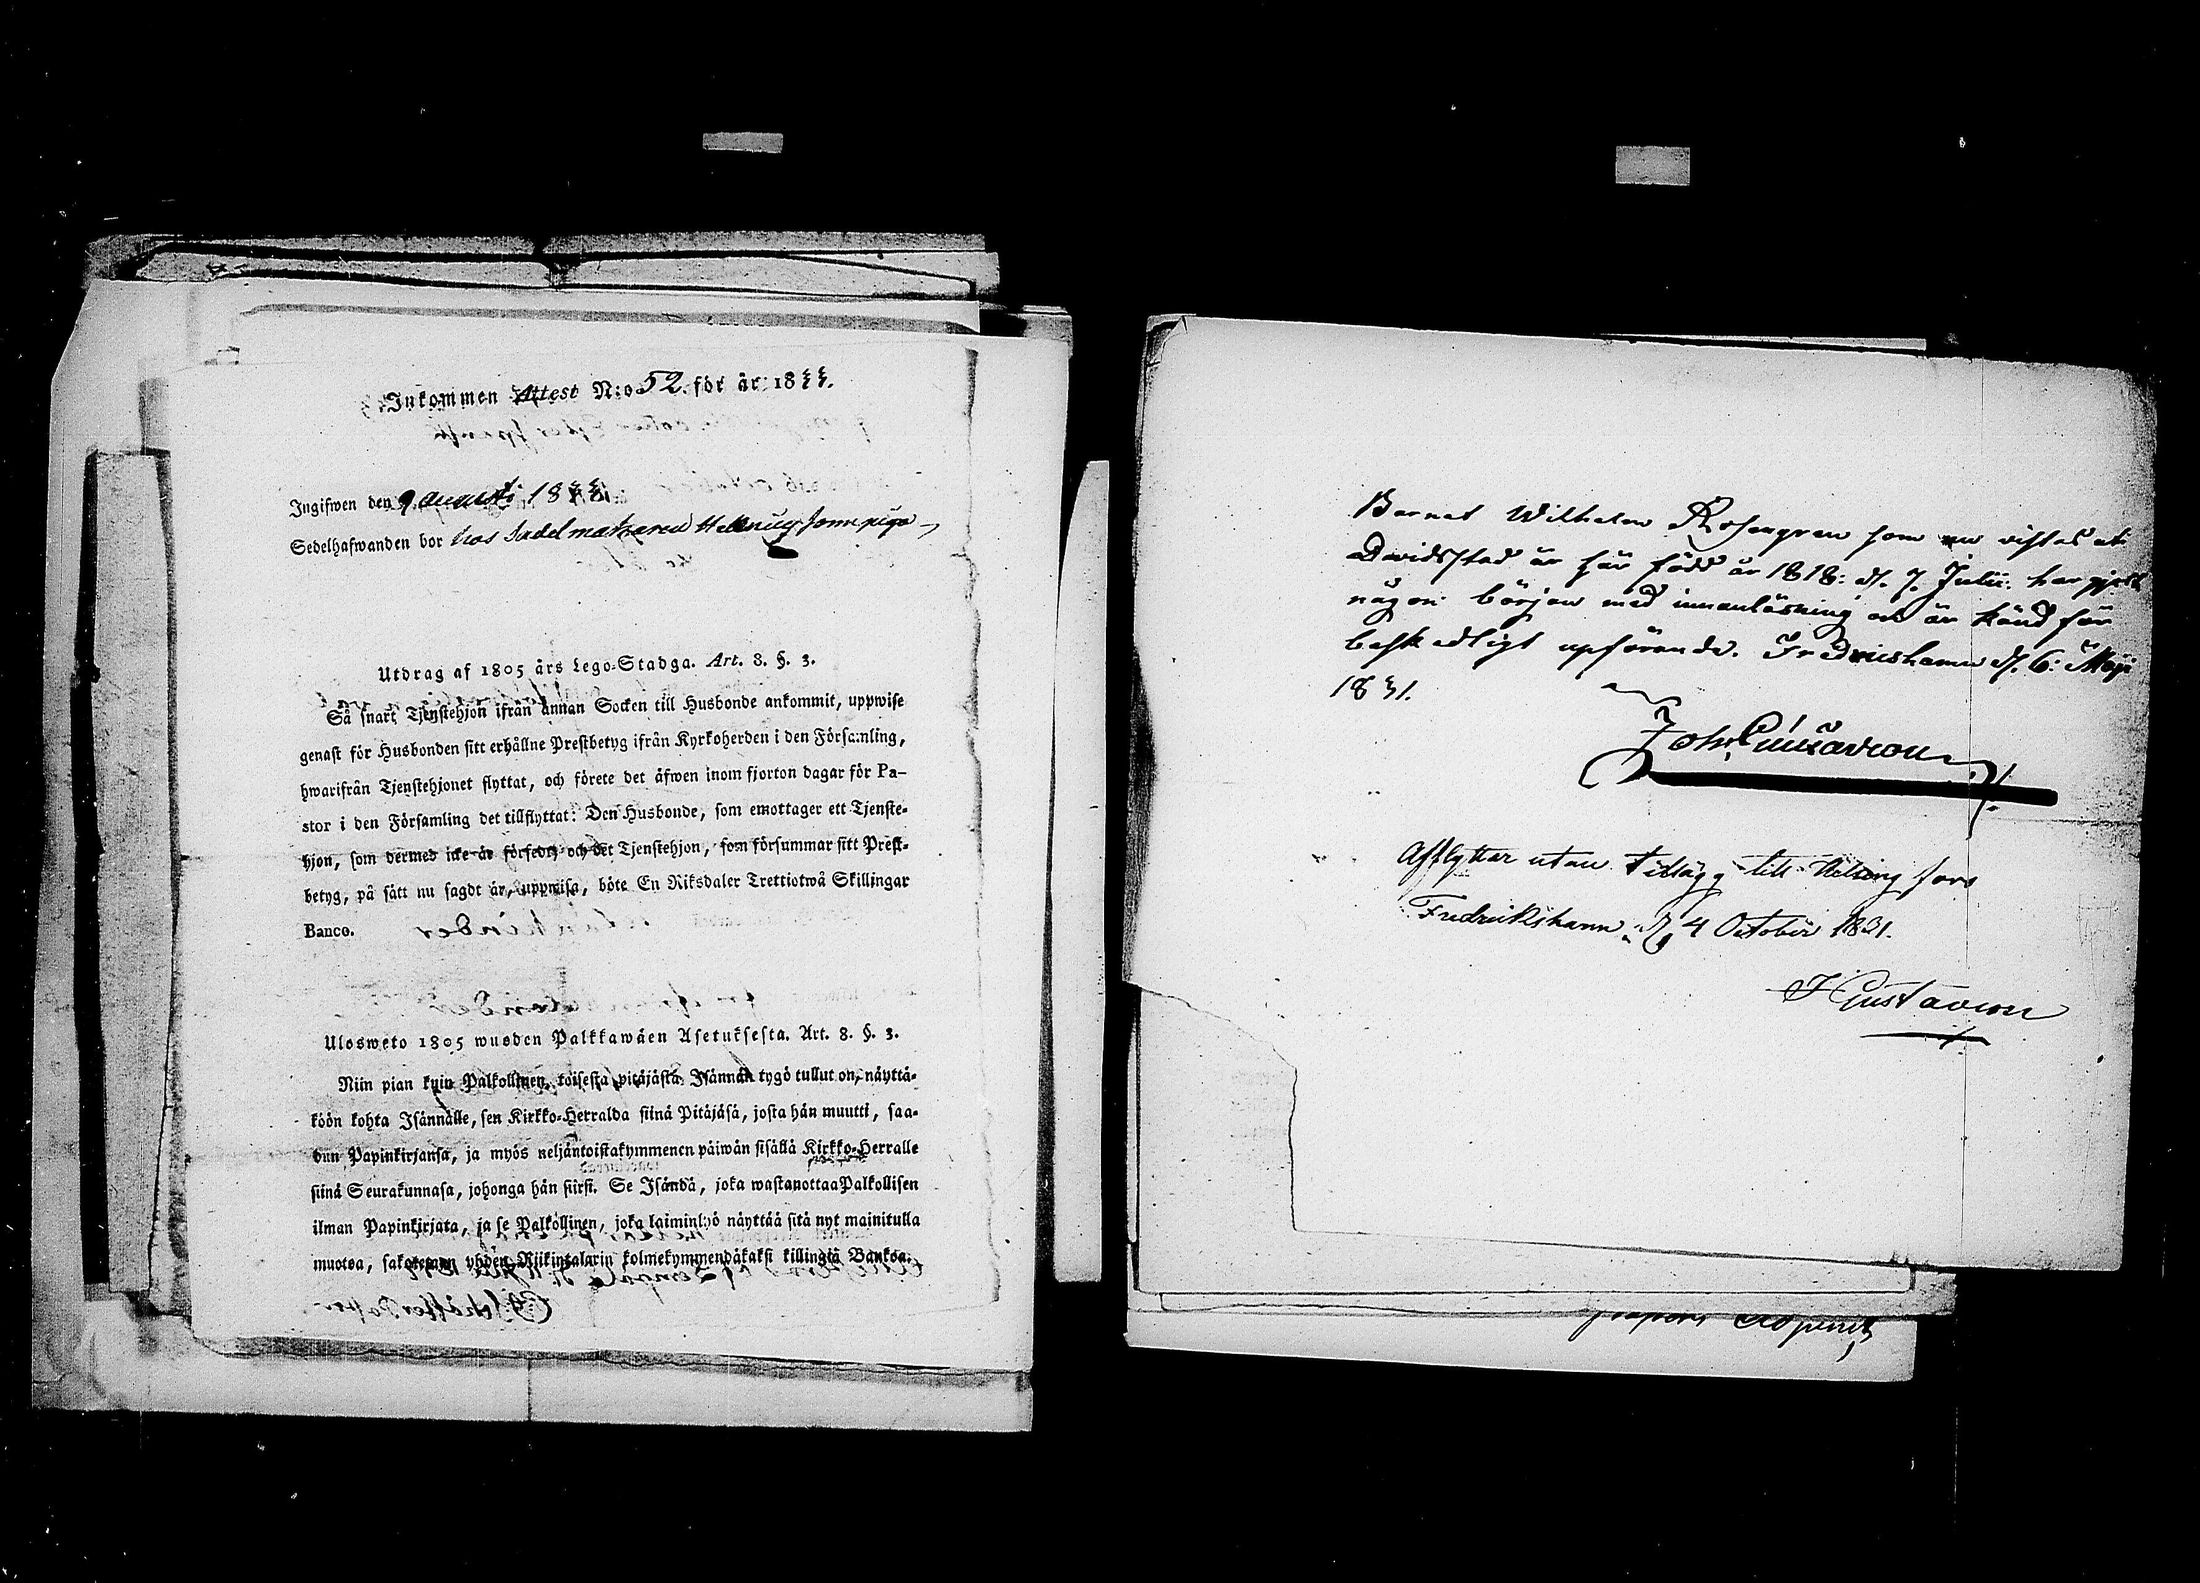 Inkommen Attest N:o 52. för år 1833.
Ingifwen den 9 augusti 1833
Sedelhafwanden bor hos Sadelmakaren som piga
Utdrag af 1805 års Lego-Stadga. Art. 8. §. 3.
Så snart Tjenstehjon ifrån annan Socken till Husbonde ankommit, uppwise
genast för Husbonden sitt erhållne Prestbetyg ifrån Kyrkoherden i den Församling,
hwarifrån Tjenstehjonet flyttat, och förete det äfwen inom fjorton dagar för Pa-
stor i den Församling det tillflyttat: Den Husbonde, som emottager ett Tjenste-
hjon, som dermed icke är försedt, och det Tjenstehjon, som försummar sitt Prest-
betyg, på sätt nu sagdt är, uppwisa, böte En Riksdaler Trettiotwå Skillingar
Banco.
Ulosweto 1805 wuoden Palkkawäen Asetuksesta. Art. 8. §. 3.
Niin pian kuin Palkollinen, toisesta pitäjästä Isännän tygö tullut on, näyttä-
köön kohta Isännälle, sen Kirkko-Herralda siinä Pitäjäsä, josta hän muutti, saa-
dun Papinkirjansa, ja myös neljäntoistakymmenen päiwän sisällä Kirkko-Herralle
siinä Seurakunnasa, johonga hän siirsi. Se Isändä, joka wastanottaa Palkollisen
ilman Papinkirjata, ja se Palkollinen, joka laiminlyö näyttää sitä nyt mainitulla
muotoa, sakotetaan yhden Riikintalarin kolmekymmendäkaksi killingiä Bankoa.
Barnet Wilhelm Rosengren som nu vistas at
Davidstad är här född år 1818: d. 7. Julii: har gjort
någon början med innanläsning och är känd för
beskedligt upförande. Fredricshamn d. 6: Maji
1831.
Joh. Gustavson
Afflyttar utan tillägg till Helsingfors
Fredrikshamn d 4 October 1831.
J Gustavson